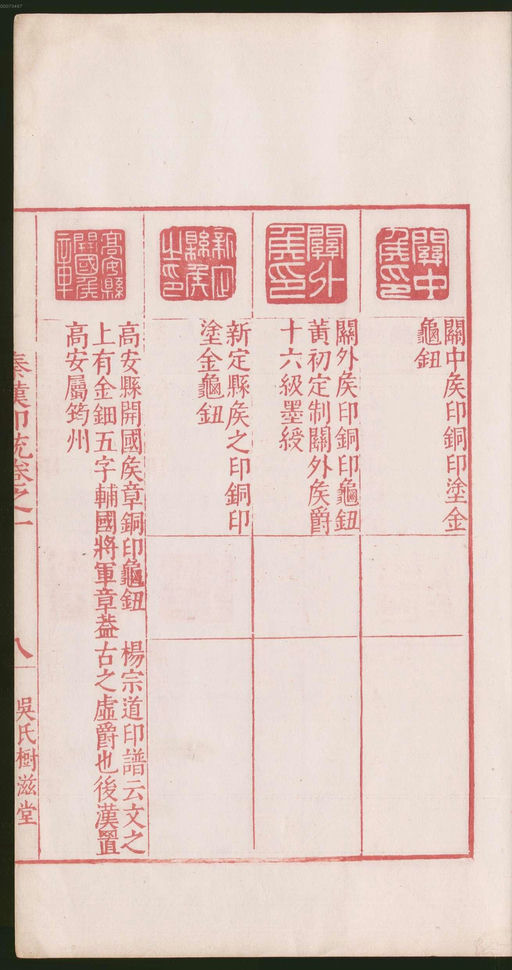 00073467
關中矦印
關中矦印銅印塗金
龜鈕
關外矦印
關外矦印銅印龜鈕
黃初定制關外矦爵
十六級墨綬
新定縣矦之印
新定縣矦之印銅印
塗金龜鈕
高安縣開國矦章
高安縣開國矦章銅印龜鈕 楊宗道印譜云文之
上有金鈿五字輔國將軍章葢古之虛爵也後漢置
高安屬筠州
秦漢印統卷之一
八
吳氏樹滋堂